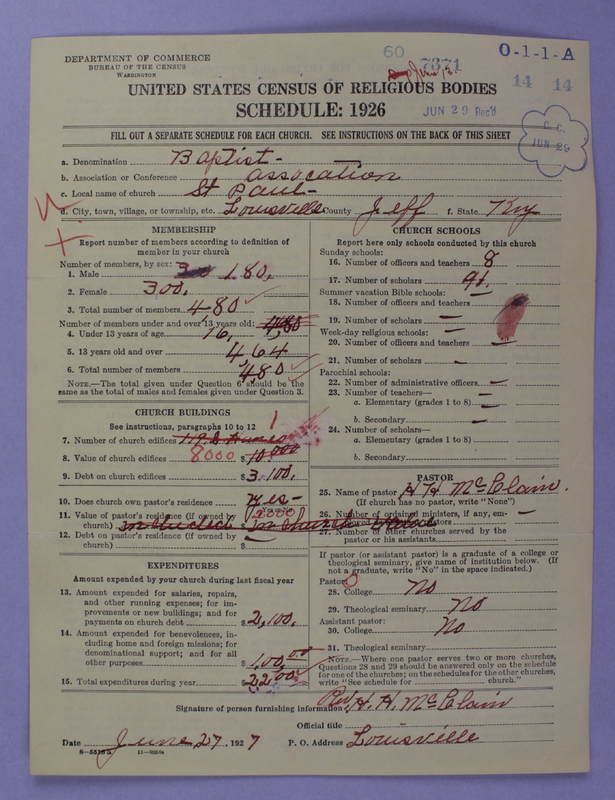 DEPARTMENT OF COMMERCE
BUREAU OF THE CENSUS
WASHINGTON
60
7371
O-1-1-A
14 14
UNITED STATES CENSUS OF RELIGIOUS BODIES
SCHEDULE: 1926
JUN 29 Rec'd
C. C.
JUN 29
FILL OUT A SEPARATE SCHEDULE FOR EACH CHURCH. SEE INSTRUCTIONS ON THE BACK OF THIS SHEET
a. Denomination Baptist -
b. Association or Conference assocation
c. Local name of church St Paul -
d. City, town, village, or township, etc. Louisville County Jeff f. State Ky
MEMBERSHIP
Report number of members according to definition of
member in your church
Number of members, by sex:
1. Male 180,
2. Female 300,
3. Total number of members 480
Number of members under and over 13 years old: 480
4. Under 13 years of age 16,
5. 13 years old and over 464
6. Total number of members 480
NOTE.—The total given under Question 6 should be the
same as the total of males and females given under Question 3.
CHURCH BUILDINGS
See instructions, paragraphs 10 to 12
7. Number of church edifices 1
8. Value of church edifices 8000 $ 10,000
9. Debt on church edifices $ 3,100,
10. Does church own pastor's residence yes -
(Yes or No)
11. Value of pastor's residence (if owned by
church) $ 2000
12. Debt on pastor's residence (if owned by
church) $ —
EXPENDITURES
Amount expended by your church during last fiscal year
13. Amount expended for salaries, repairs,
and other running expenses; for im-
provements or new buildings; and for
payments on church debt $ 2,100,
14. Amount expended for benevolences, in-
cluding home and foreign missions; for
denominational support; and for all
other purposes $ 100,00
15. Total expenditures during year $ 2200
CHURCH SCHOOLS
Report here only schools conducted by this church
Sunday schools:
16. Number of officers and teachers 8
17. Number of scholars 91,
Summer vacation Bible schools:
18. Number of officers and teachers
19. Number of scholars —
Week-day religious schools:
20. Number of officers and teachers —
21. Number of scholars -
Parochial schools:
22. Number of administrative officers —
23. Number of teachers—
a. Elementary (grades 1 to 8) —
b. Secondary —
24. Number of scholars—
a. Elementary (grades 1 to 8)
b. Secondary
PASTOR
25. Name of pastor H H McClain.
(If church has no pastor, write "None")
26. Number of ordained ministers, if any, em-
27. Number of other churches served by the
pastor or his assistants
If pastor (or assistant pastor) is a graduate of a college or
theological seminary, give name of institution below. (If
not a graduate, write "No" in the space indicated.)
Pastor:
28. College No
29. Theological seminary No
Assistant pastor:
30. College No
31. Theological seminary
NOTE.—Where one pastor serves two or more churches,
Questions 28 and 29 should be answered only on the schedule
for one of the churches; on the schedules for the other churches,
write "See schedule for church."
Signature of person furnishing information Rev H. H. McClain
Official title
Date June 27, 1927 P. O. Address Louisville